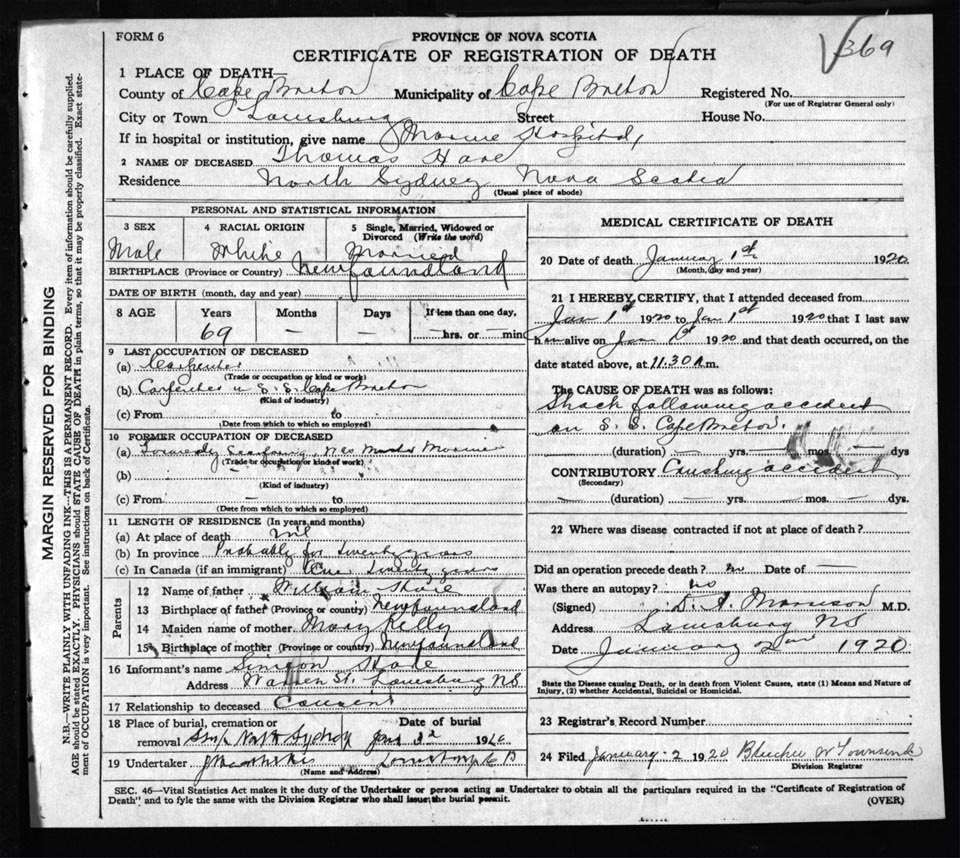 FORM 6
PROVINCE OF NOVA SCOTIA
CERTIFICATE OF REGISTRATION OF DEATH
369
1 PLACE OF DEATH—
County of Cape Breton Municipality of Cape Breton Registered No.
(For use of Registrar General only)
City or Town Louisburg Street House No.
If in hospital or institution, give name Marine Hospital,
2 NAME OF DECEASED Thomas Hare
Residence North Sydney Nova Scotia
(Usual place of abode)
PERSONAL AND STATISTICAL INFORMATION
3 SEX 4 RACIAL ORIGIN 5 Single, Married, Widowed or Divorced (Write the word)
Male White Married
BIRTHPLACE (Province or Country) Newfoundland
DATE OF BIRTH (month, day and year)
8 AGE Years Months Days If less than one day,
69 — — —hrs. or —min
9 LAST OCCUPATION OF DECEASED
(a) Carpenter
(Trade or occupation or kind of work)
(b) Carpenter on S.S. Cape Breton
(Kind of industry)
(c) From to
(Date from which to which so employed)
10 FORMER OCCUPATION OF DECEASED
(a) Formerly seafaring,
(Trade or occupation or kind of work)
(b) —
(Kind of industry)
(c) From — to
(Date from which to which so employed)
11 LENGTH OF RESIDENCE (In years and months)
(a) At place of death nil
(b) In province Probably for twenty years
(c) In Canada (if an immigrant) twenty years
Parents
12 Name of father William Hare
13 Birthplace of father (Province or country) Newfoundland
14 Maiden name of mother Mary Kelly
15 Birthplace of mother (Province or country) Newfoundland
16 Informant's name Simeon Hare
Address Warren St. Louisburg NS
17 Relationship to deceased Cousin
18 Place of burial, cremation or removal North Sydney Date of burial Jan 19
19 Undertaker
(Name and Address)
MEDICAL CERTIFICATE OF DEATH
20 Date of death January 1st 1920
(Month, day and year)
21 I HEREBY CERTIFY, that I attended deceased from
Jan 1st 1920 to Jan 1st 1920 that I last saw
him alive on Jan 1st 1920 and that death occurred, on the
date stated above, at 11.30 m.
The CAUSE OF DEATH was as follows:
Shock following accident
on S.S. Cape Breton.
(duration) — yrs. mos. — dys
CONTRIBUTORY Crushing accident
(Secondary)
— (duration) — yrs. — mos. — dys.
22 Where was disease contracted if not at place of death?
Did an operation precede death? no Date of —
Was there an autopsy? no
(Signed) D. A. Morrison M.D.
Address Louisburg NS
Date January 2nd 1920
State the Disease causing Death, or in death from Violent Causes, state (1) Means and Nature of
Injury, (2) whether Accidental, Suicidal or Homicidal.
23 Registrar's Record Number
24 Filed January 2 1920 Blucher W Townsend
Division Registrar
SEC. 46—Vital Statistics Act makes it the duty of the Undertaker or person acting as Undertaker to obtain all the particulars required in the "Certificate of Registration of
Death" and to fyle the same with the Division Registrar who shall issue the burial permit.
(OVER)
MARGIN RESERVED FOR BINDING
N.B.—WRITE PLAINLY WITH UNFADING INK—THIS IS A PERMANENT RECORD. Every item of information should be carefully supplied.
AGE should be stated EXACTLY. PHYSICIANS should STATE CAUSE OF DEATH in plain terms, so that it may be properly classified. Exact statement
of OCCUPATION is very important. See instructions on back of Certificate.